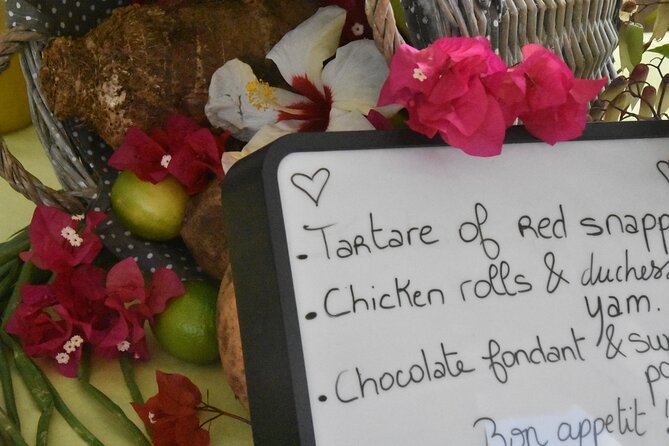 . Tartare of Red Snapp
. Chicken rolls & duches
yam.
. Chocolate fondant & sw
po
Bon appetit !